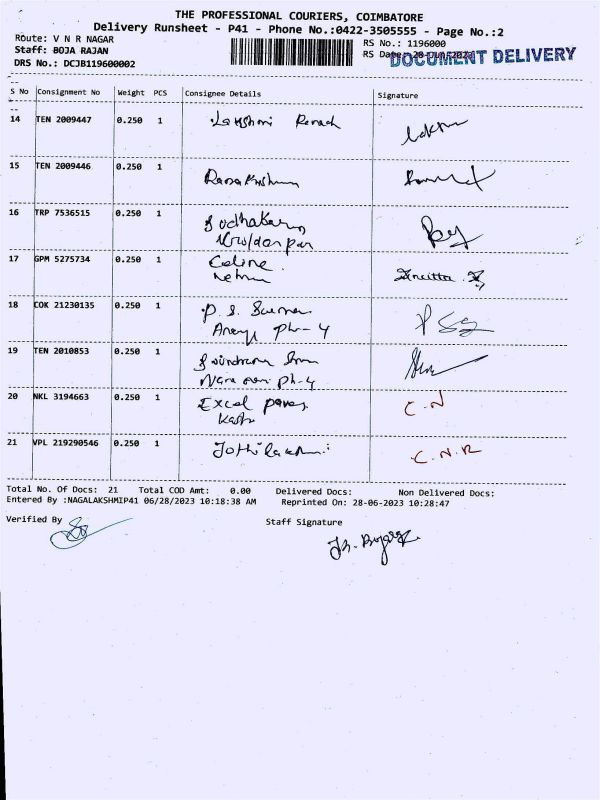 THE PROFESSIONAL COURIERS, COIMBATORE
Delivery Runsheet - P41 - Phone No.:0422-3505555 - Page No.:2
Route: V N R NAGAR
RS No.: 1196000
Staff: BOJA RAJAN
RS Date: 28-Jun-2023
DOCUMENT DELIVERY
DRS No.: DCJB119600002
S No Consignment No Weight PCS Consignee Details Signature
14 TEN 2009447 0.250 1 Lakshmi
15 TEN 2009446 0.250 1
16 TRP 7536515 0.250 1 Sudhakar
17 GPM 5275734 0.250 1 Celine
18 COK 21230135 0.250 1 P. S.
Ph-4
19 TEN 2010853 0.250 1
Ph-4
20 NKL 3194663 0.250 1 Excel C.N
21 VPL 219290546 0.250 1 Jothilakshmi C.N.R
Total No. Of Docs: 21 Total COD Amt: 0.00 Delivered Docs: Non Delivered Docs:
Entered By :NAGALAKSHMIP41 06/28/2023 10:18:38 AM Reprinted On: 28-06-2023 10:28:47
Verified By
Staff Signature